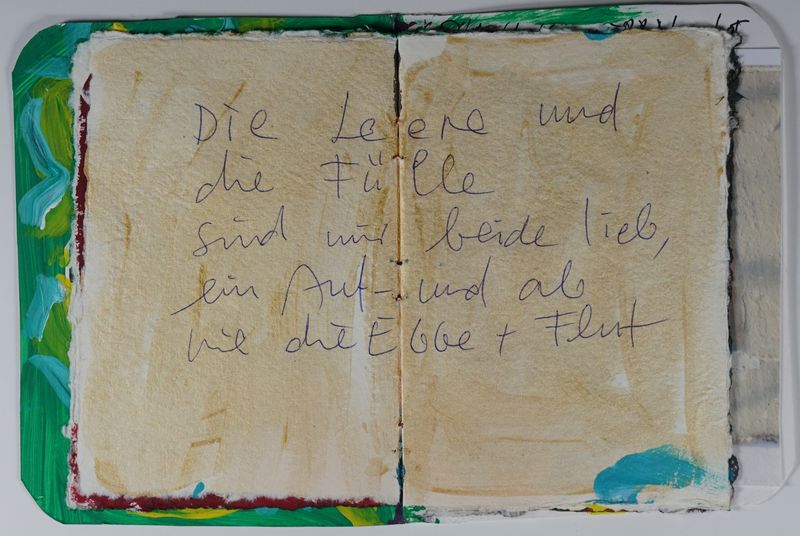 Die Leere und
die Fülle
sind mir beide lieb,
ein Auf- und ab
wie die Ebbe + Flut